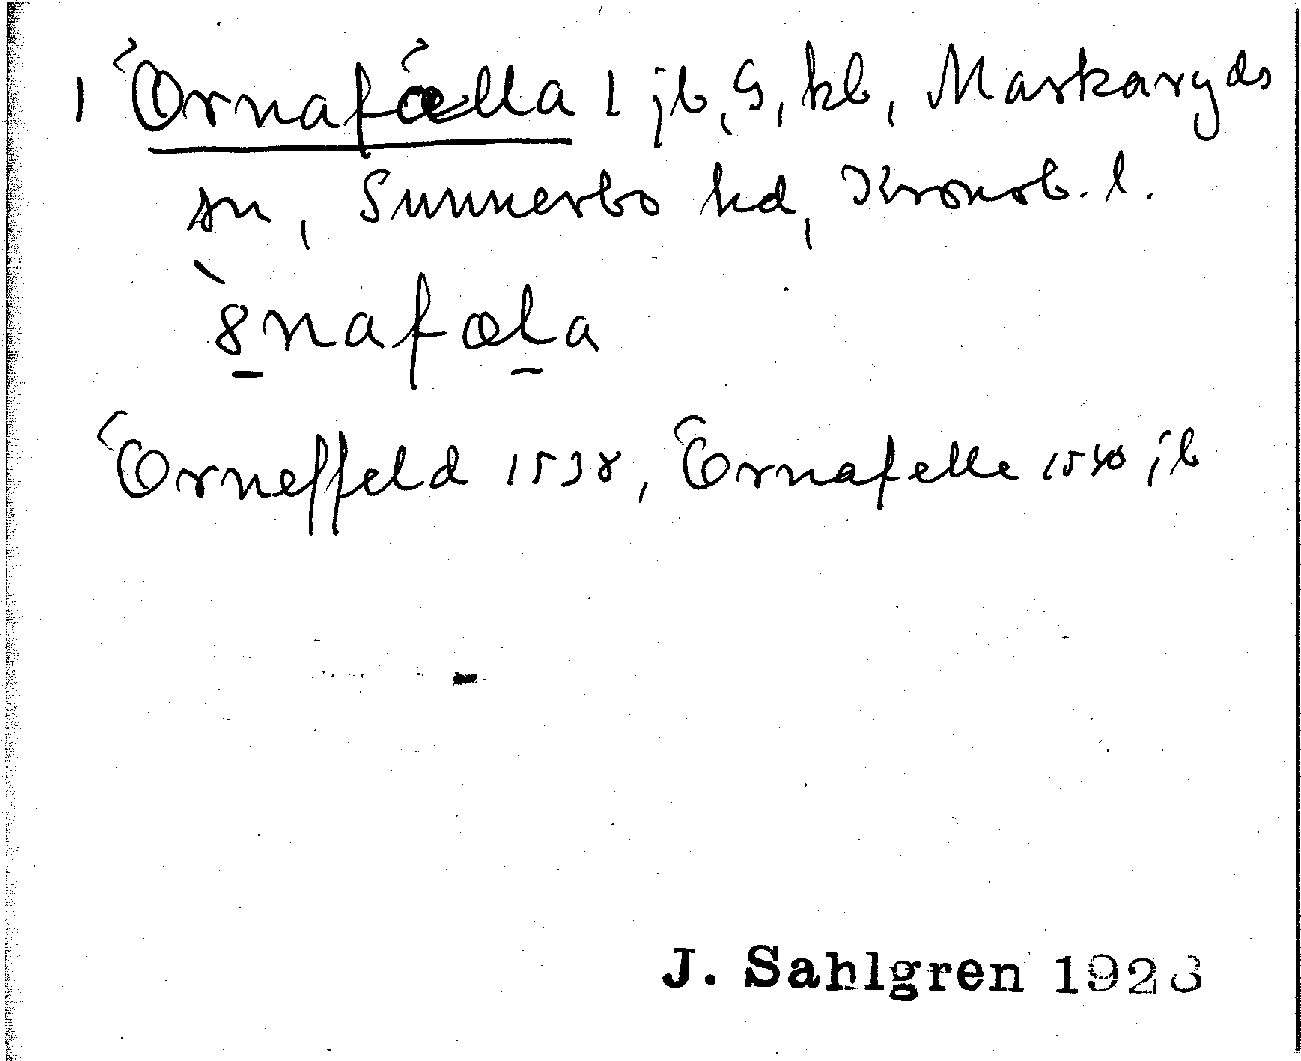 1 Örnafälla 1 jb, G, kb, Markaryds
sn, Sunnerbo hd, Kronob. l.
`8nafæla
Örneffeld 1538, Örnafelle 1540 jb
J. Sahlgren 1923